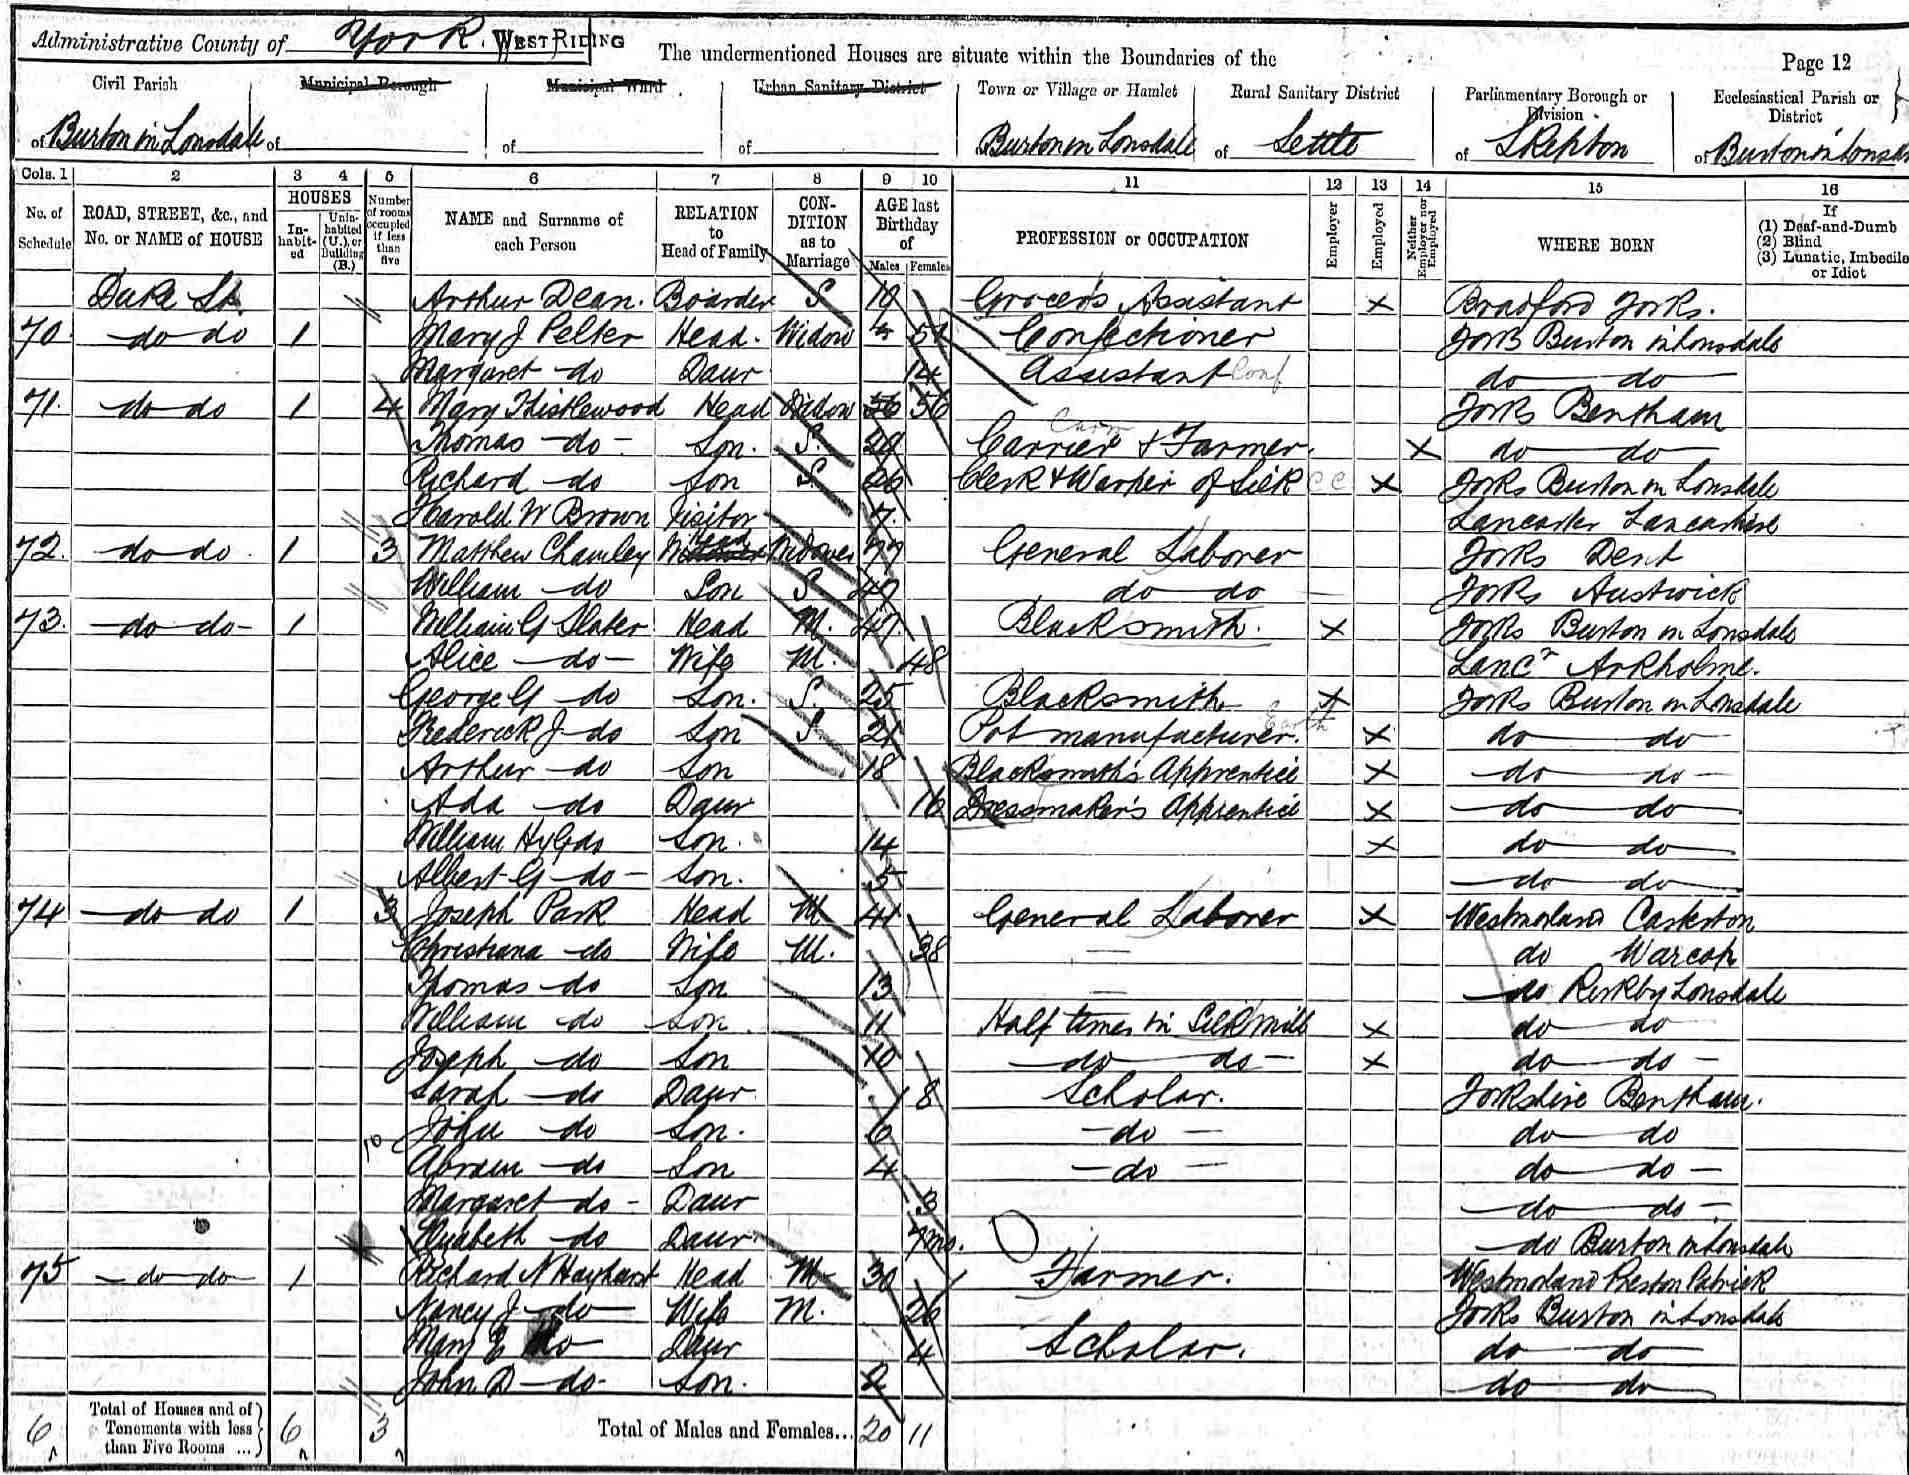 Administrative County of York. WEST RIDING The undermentioned Houses are situate within the Boundaries of the Page 12
Civil Parish Municipal Borough Municipal Ward Urban Sanitary District Town or Village or Hamlet Rural Sanitary District Parliamentary Borough or Division Ecclesiastical Parish or District
of Burton in Lonsdale of of of Burton in Lonsdale of Settle of Skipton of Burton in Lonsd
Cols. 1 2 3 4 5 6 7 8 9 10 11 12 13 14 15 16
No. of Schedule ROAD, STREET, &c., and No. or NAME of HOUSE HOUSES Inhabited Uninhabited (U.), or Building (B.) Number of rooms occupied if less than five NAME and Surname of each Person RELATION to Head of Family CONDITION as to Marriage AGE last Birthday of Males Females PROFESSION or OCCUPATION Employer Employed Neither Employer nor Employed WHERE BORN If (1) Deaf-and-Dumb (2) Blind (3) Lunatic, Imbecile or Idiot
Duke St. Arthur Dean. Boarder S 19 Grocer's Assistant X Bradford Yorks.
70. do do 1 Mary J Pelter Head. Widow Confectioner York Burton in Lonsdale
Margaret do Daur 14 Assistant Conf do do
71. do do 1 4 Mary Thistlewood Head Widow 56 56 Yorks Bentham
Thomas do Son. S. 29 Carrier & Farmer. X do do
Richard do Son S. 26 Clerk & Warper of Silk C C X Yorks Burton in Lonsdale
Harold W Brown Visitor 7. Lancaster Lancashire
72. do do 1 3 Matthew Chamley Head Widower 77 General Laborer Yorks Dent
William do Son S 49 do do Yorks Austwick
73. do do 1 William G Slater Head M. 49. Blacksmith. X Yorks Burton in Lonsdale
Alice do Wife M. 48 Lancr Arkholme.
George G do Son. S. 25 Blacksmith X Yorks Burton in Lonsdale
Frederick J do Son S. 21 Pot manufacturer. Earth X do do
Arthur do Son 18 Blacksmith's Apprentice X do do
Ada do Daur 16 Dressmaker's Apprentice X do do
William Hy do Son. 14 X do do
Albert G do Son. 5 do do
74 do do 1 3 Joseph Park Head M 41 General Laborer X Westmorland Casterton
Christiana do Wife M. 38 do Warcop
Thomas do Son 13 do Kirkby Lonsdale
William do Son. 11 Half times in Silk mill X do do
Joseph do Son 10 do do X do do
Sarah do Daur 8 Scholar. Yorkshire Bentham.
John do Son. 6 do do do
10 Abram do Son 4 do do do
Margaret do Daur 3 do do
Elizabeth do Daur. 7 mo. do Burton in Lonsdale
75 do do 1 Richard N Hayhurst Head M 30 Farmer. Westmorland Preston Patrick
Nancy J do Wife M. 26 Yorks Burton in Lonsdale
Mary E do Daur 4 Scholar. do do
John D do Son. 2 do do
6 Total of Houses and of Tenements with less than Five Rooms ... 6 3 Total of Males and Females... 20 11